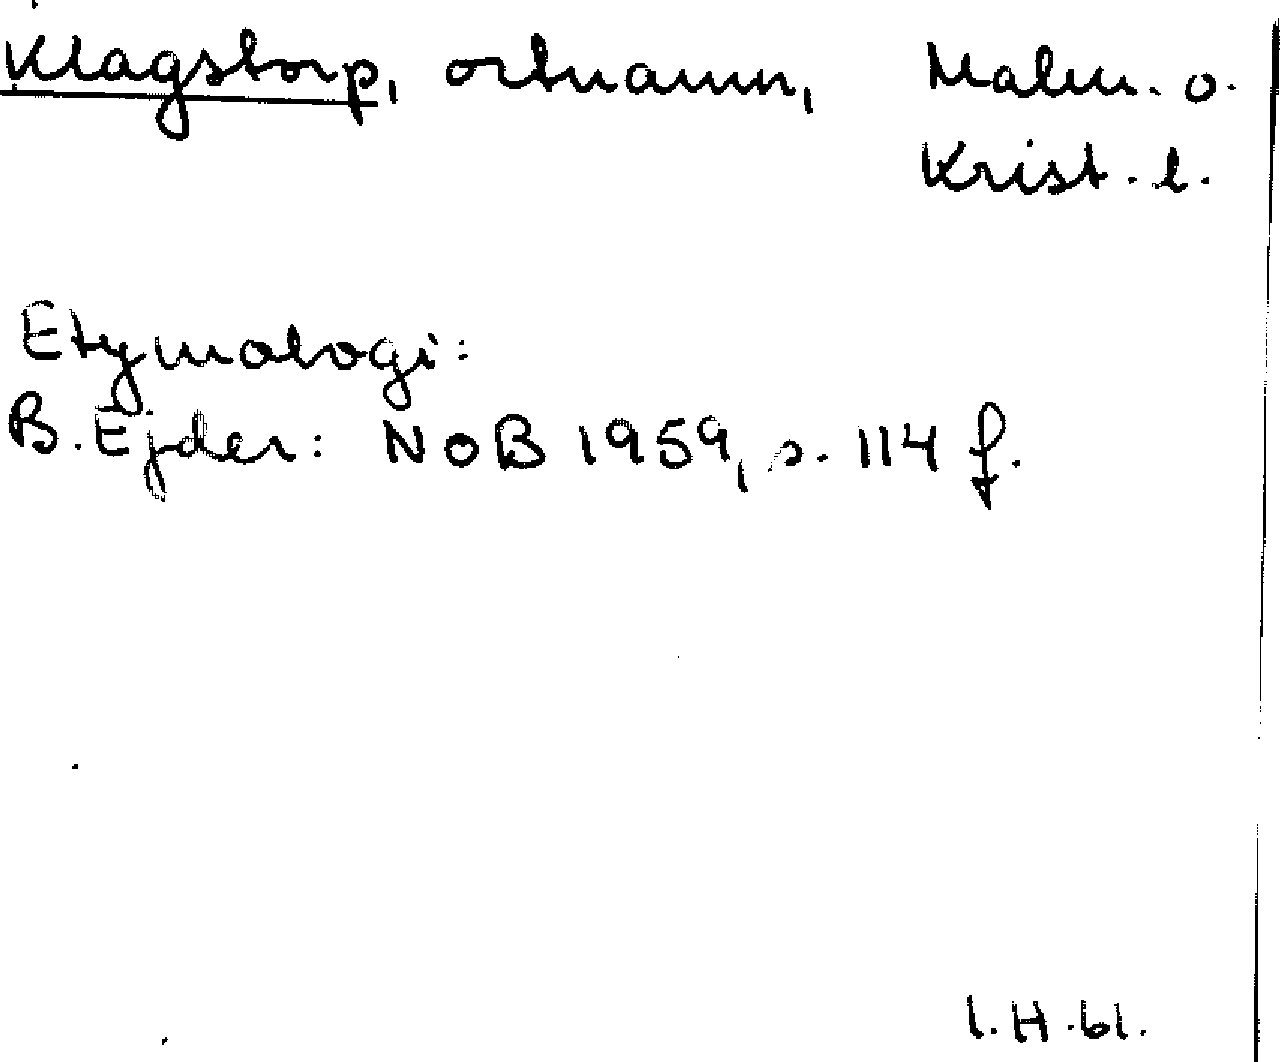 Klagstorp, ortnamn, Malm. o.
Krist. l.
Etymologi:
B. Ejder: NoB 1959, s. 114 f.
I.H.61.